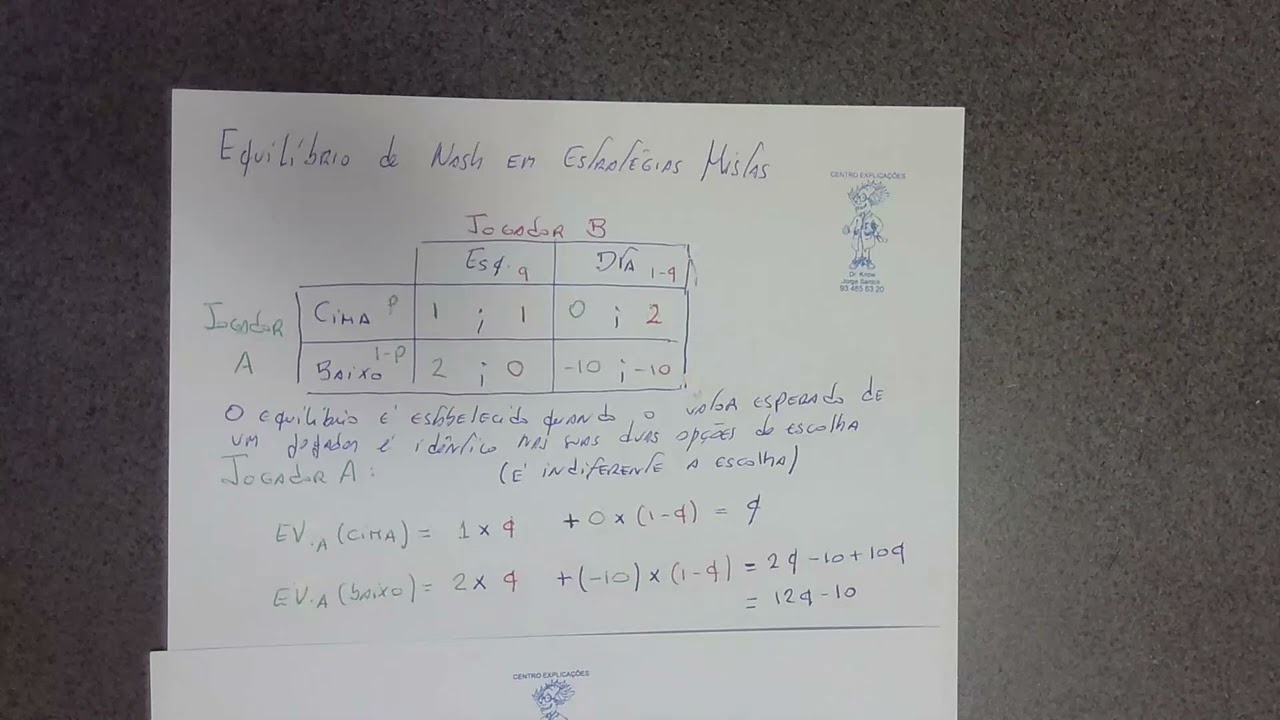 Equilíbrio de Nash em Estratégias Mistas
CENTRO EXPLICAÇÕES
Dr. Know
Jorge Santos
93 485 63 20
Jogador B
Esq. q Dta 1-q
Jogador A
Cima p 1 ; 1 0 ; 2
Baixo 1-p 2 ; 0 -10 ; -10
O equilíbrio é estabelecido quando o valor esperado de
um jogador é idêntico nas suas duas opções de escolha
Jogador A: (é indiferente a escolha)
EV.A (Cima) = 1 × q + 0 × (1-q) = q
EV.A (Baixo) = 2 × q + (-10) × (1-q) = 2q - 10 + 10q
= 12q - 10
CENTRO EXPLICAÇÕES